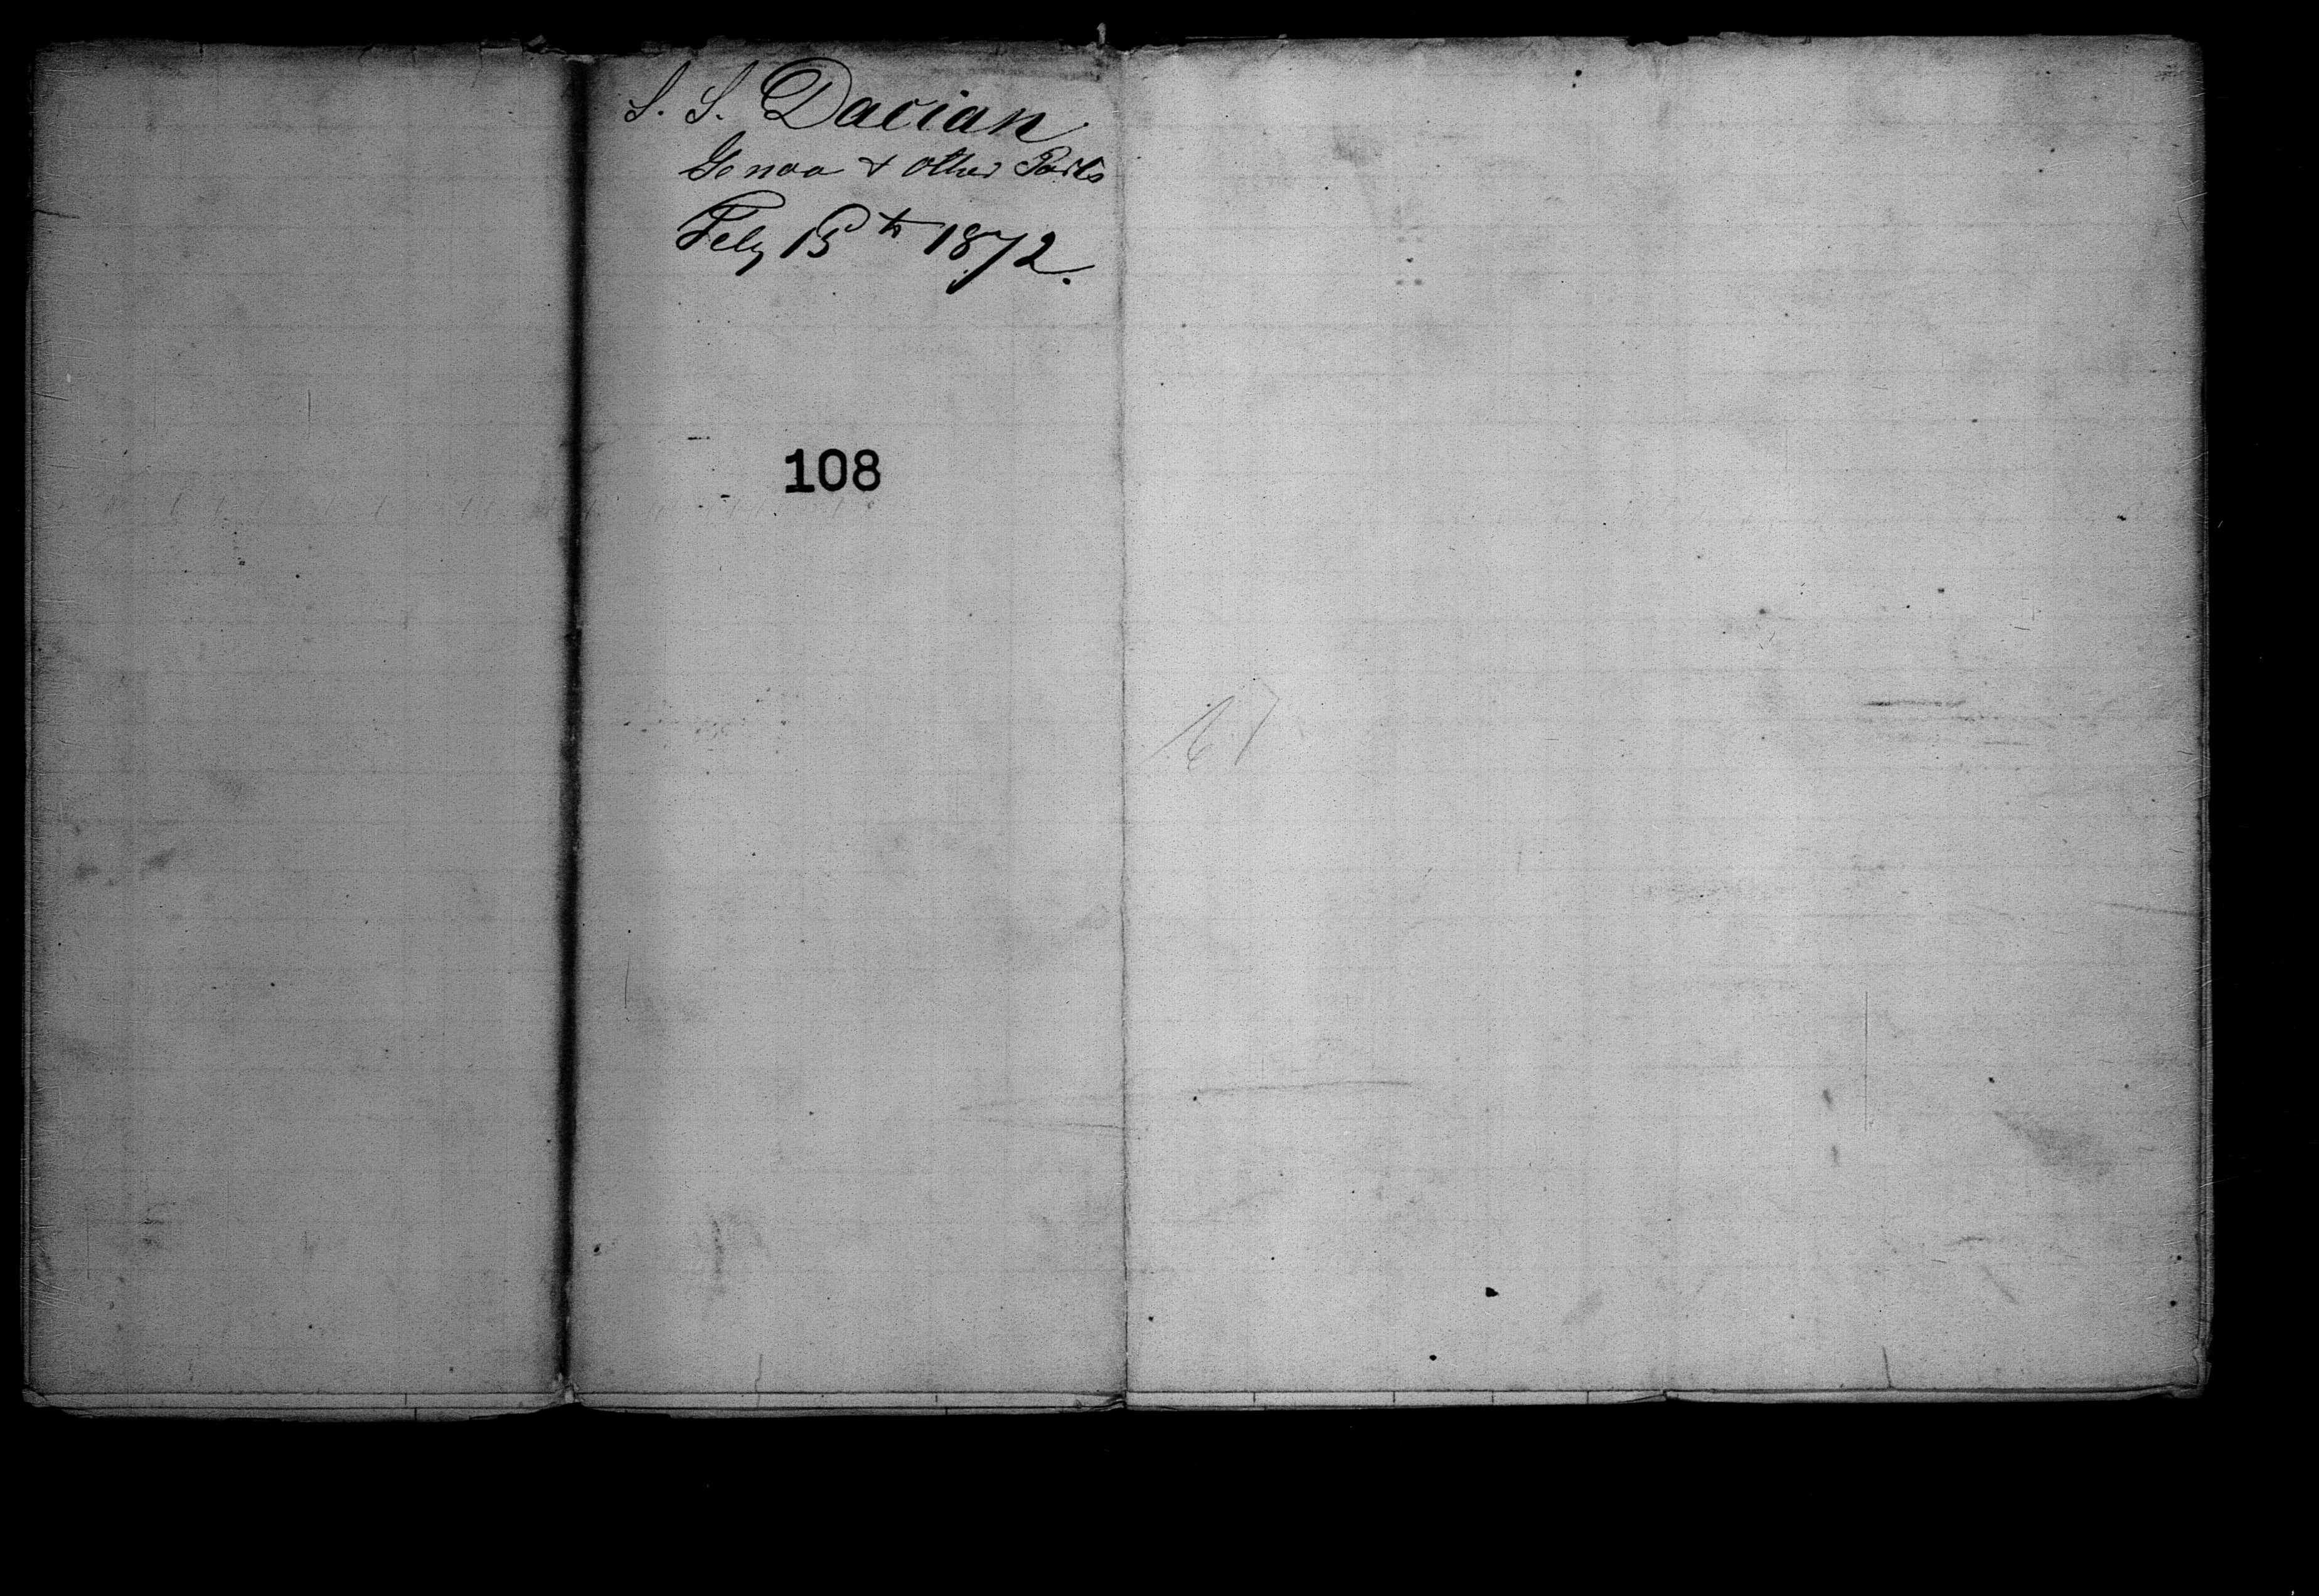 S. S. Dacian
Genoa & other Ports
Feby 15th 1872.
108
67